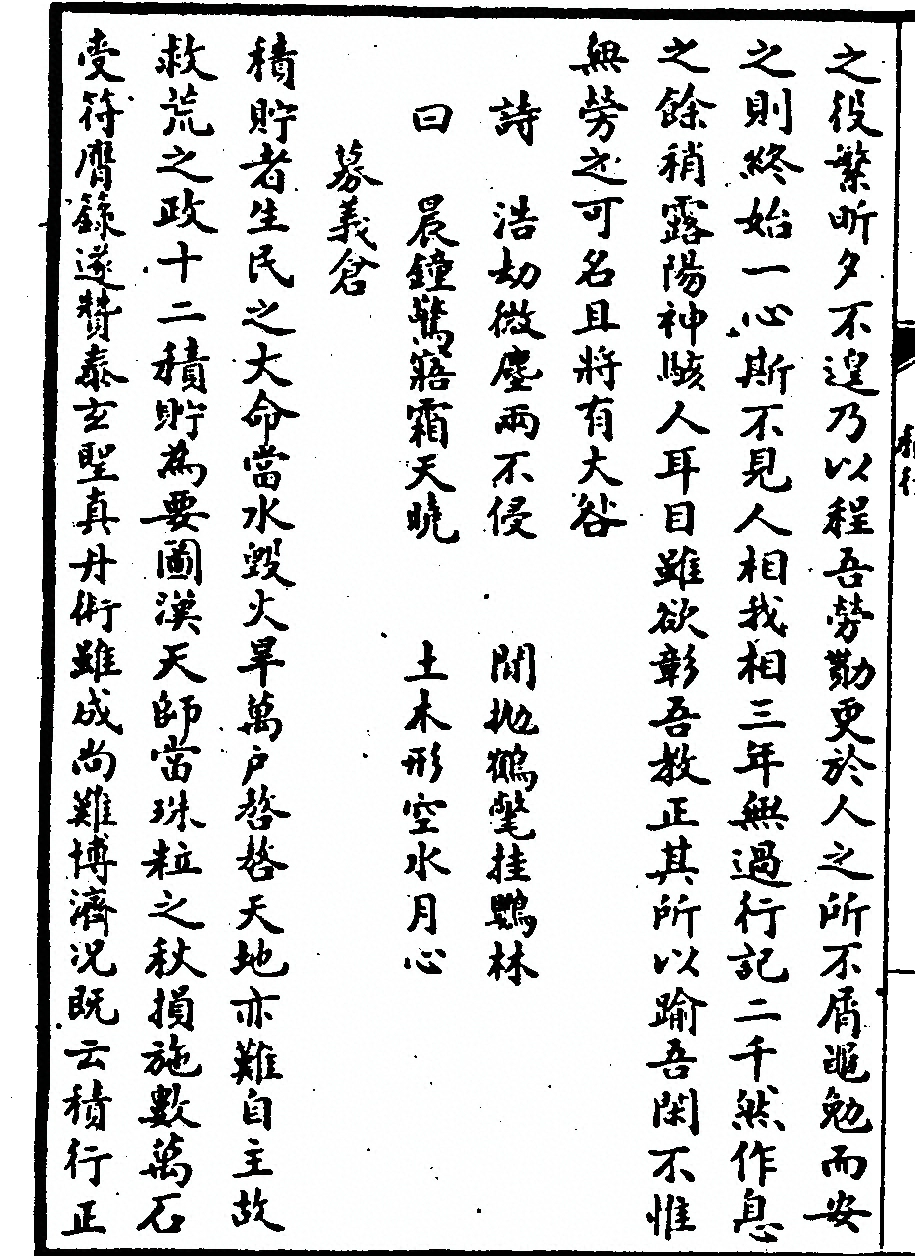 之役繁昕夕不遑乃以程吾勞勩更於人之所不屑黽勉而安
之則終始一心斯不見人相我相三年無過行記二千然作息
之餘稍露陽神駭人耳目雖欲彰吾教正其所以踰吾閑不惟
無勞之可名且將有大咎
詩　浩劫微塵兩不侵　閒拋鶴氅挂鸚林
曰　晨鐘驚寤霜天曉　土木形空水月心
募義倉
積貯者生民之大命當水毀火旱萬户嗸嗸天地亦難自主故
救荒之政十二積貯為要圖漢天師當珠粒之秋損施數萬石
受符膺籙遂贊泰玄聖真丹術雖成尚難博濟况既云積行正